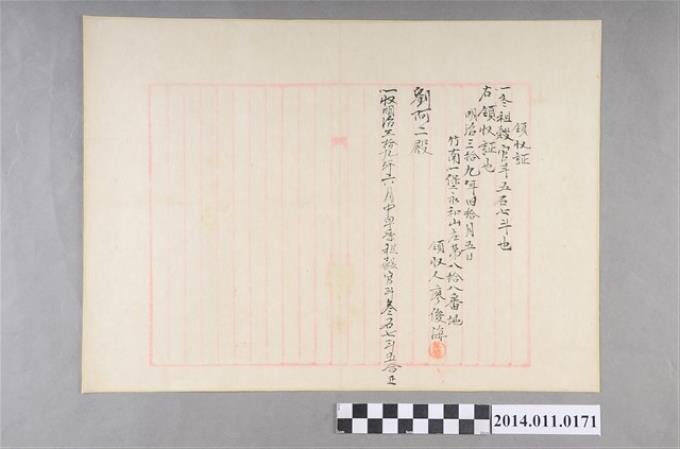 領収証
一冬祖穀官斗五石七斗也
右領収証也
明治三拾九年四拾月五日
竹南一堡永和山庄第八拾八番地
領收人廖俊海
劉阿二殿
一收明治三拾九年六月中早季祖穀官斗叁石七斗五合正
2014.011.0171